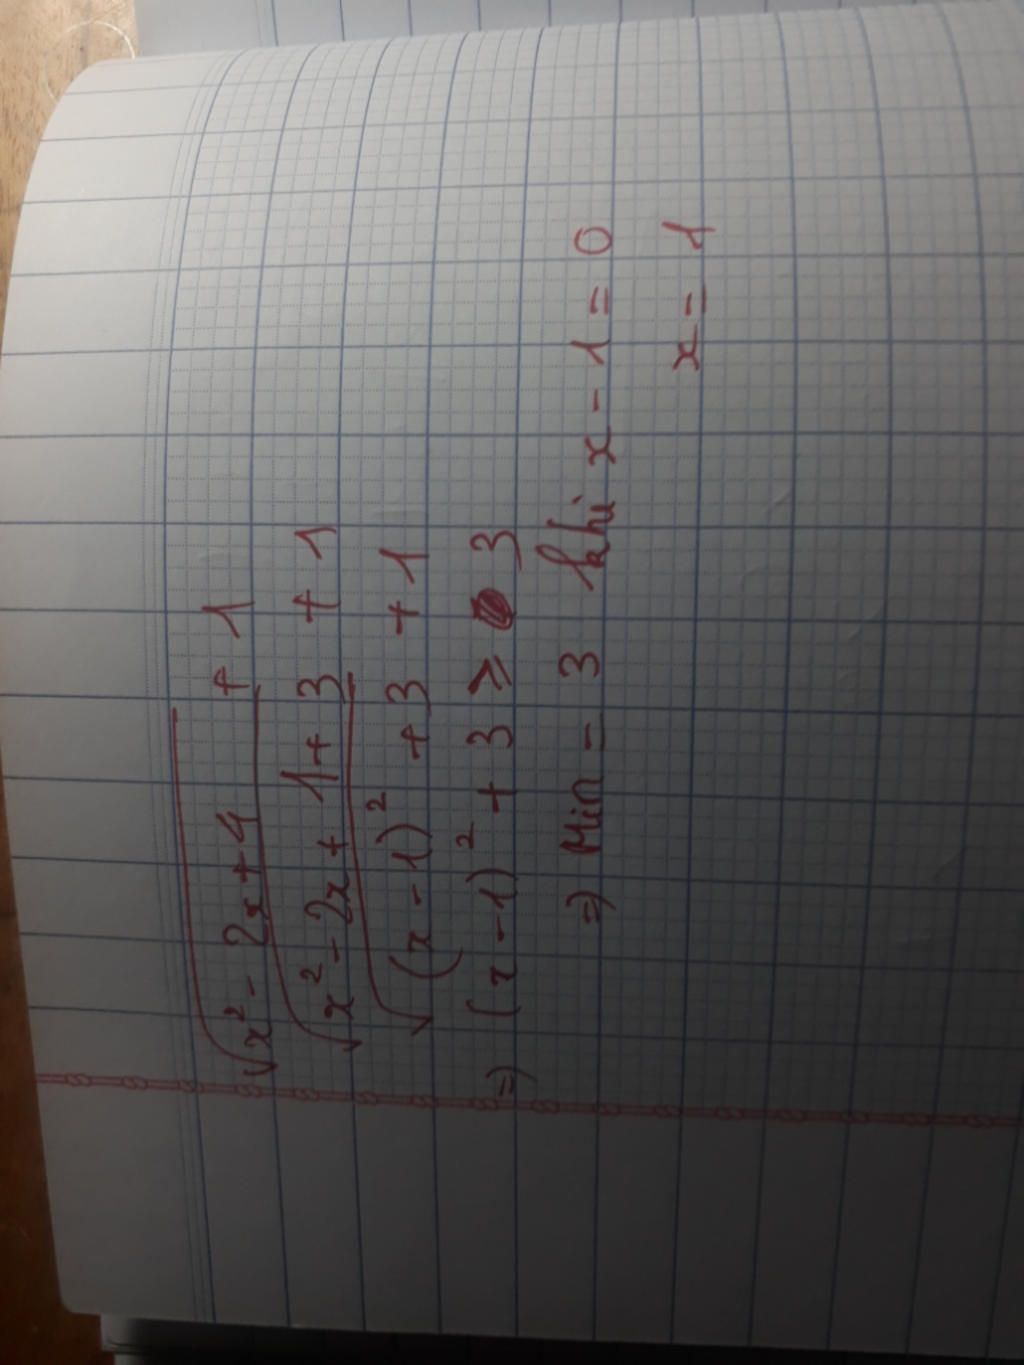 √x² - 2x + 4 + 1
√x² - 2x + 1 + 3 + 1
√(x - 1)² + 3 + 1
⇒ (x - 1)² + 3 ≥ 3
⇒ Min = 3 khi x - 1 = 0
x = 1